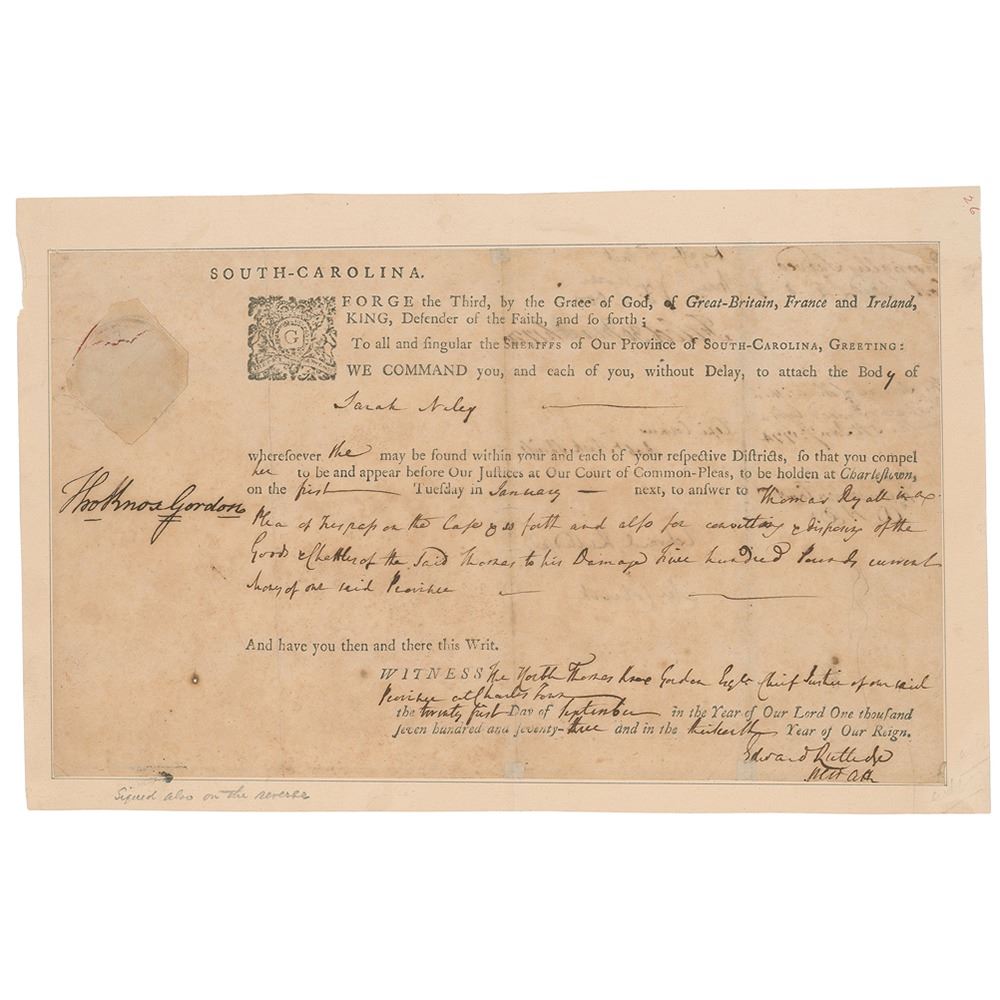 26
SOUTH-CAROLINA.
G
EORGE the Third, by the Grace of God, of Great-Britain, France and Ireland,
KING, Defender of the Faith, and ſo forth;
To all and ſingular the SHERIFFS of Our Province of SOUTH-CAROLINA, GREETING:
WE COMMAND you, and each of you, without Delay, to attach the Body of
Sarah
whereſoever ſhe may be found within your and each of your reſpective Diſtricts, ſo that you compel
her to be and appear before Our Juſtices at Our Court of Common-Pleas, to be holden at Charleſtown,
on the first Tuesday in January next, to answer to Thomas Ryall in a
Thos Knox Gordon
Plea of Treſpaſs on the Caſe & so forth and alſo for converting & disposing of the
Goods & Chattles of the Said Thomas to his Damage Five hundred Pounds current
Money of our said Province
And have you then and there this Writ.
WITNESS The Honble Thomas Knox Gordon Eſqr Chief Justice of our said
Province at Charles Town
the twenty first Day of September in the Year of Our Lord One thouſand
ſeven hundred and ſeventy-three and in the thirteenth Year of Our Reign.
Edward Rutledge
Plt Att
Signed also on the reverse